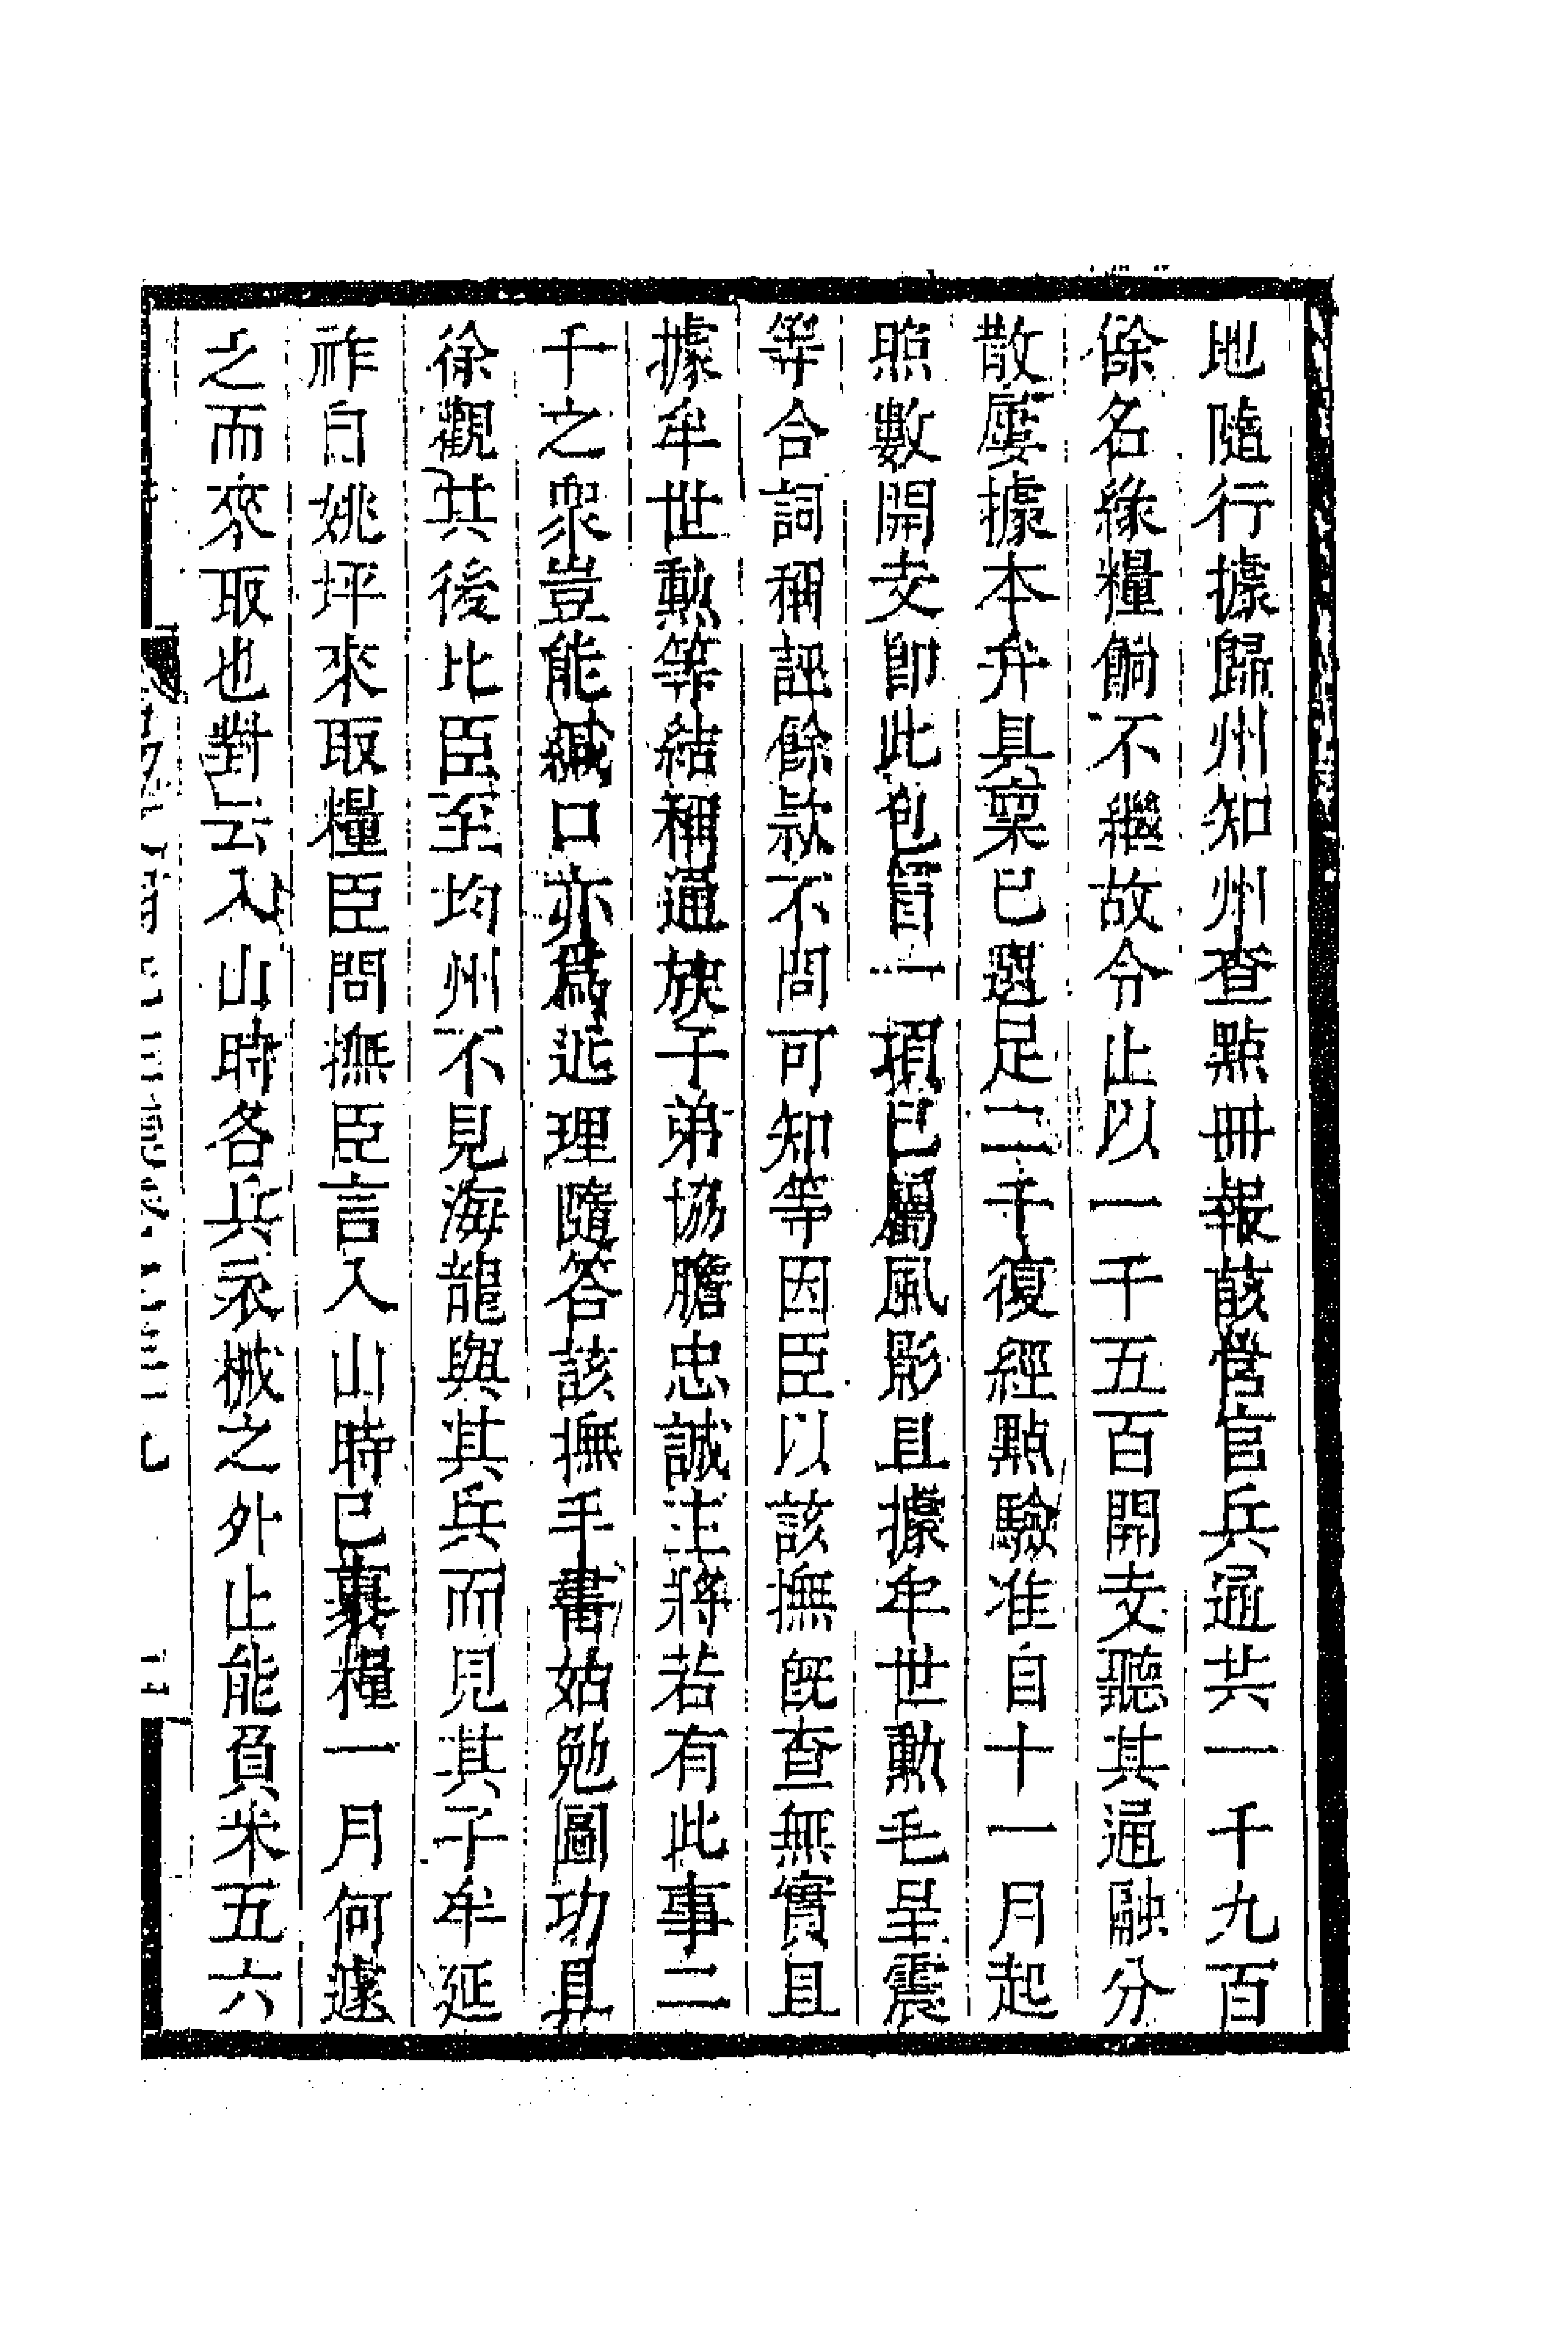 地隨行據歸州知州查點冊報該營官兵通共一千九百
餘名緣糧餉不繼故令止以一千五百開支聽其通融分
散屢據本弁具稟已選足二千復經點驗准自十一月起
照數開支卽此包冒一項已屬風影且據牟世勳毛呈震
等合詞稱誣餘款不問可知等因臣以該撫旣查無實且
據牟世勳等結稱通族子弟協膽忠誠主將若有此事二
千之衆豈能緘口亦爲近理隨答該撫手書姑勉圖功且
徐觀其後比臣至均州不見海龍與其兵而見其子牟延
祚自姚坪來取糧臣問撫臣言入山時已裹糧一月何遽
之而來取也對云入山時各兵衣械之外止能負米五六